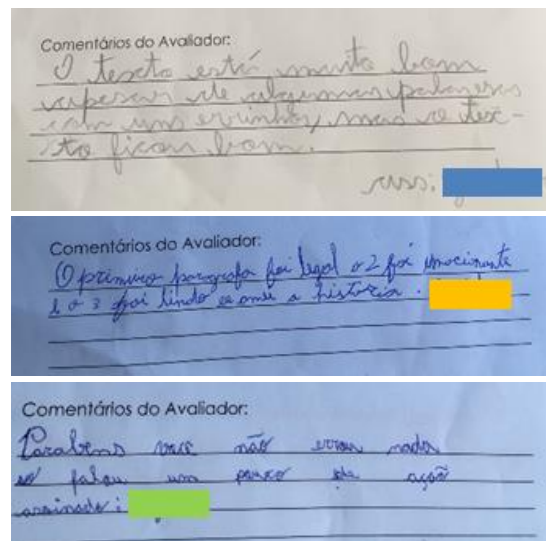 Comentários do Avaliador:
O texcto está muito bom
apesar de algumas palavras
com uns errinhos, mas o tex-
to ficou bom.
ass:
Comentários do Avaliador:
O primeiro paragrafo foi legal o 2 foi imocinante
e o 3 foi lindo eu amei a historia.
Comentários do Avaliador:
Parabens você não errou nada
só faltou um pouco de ação
assinado: